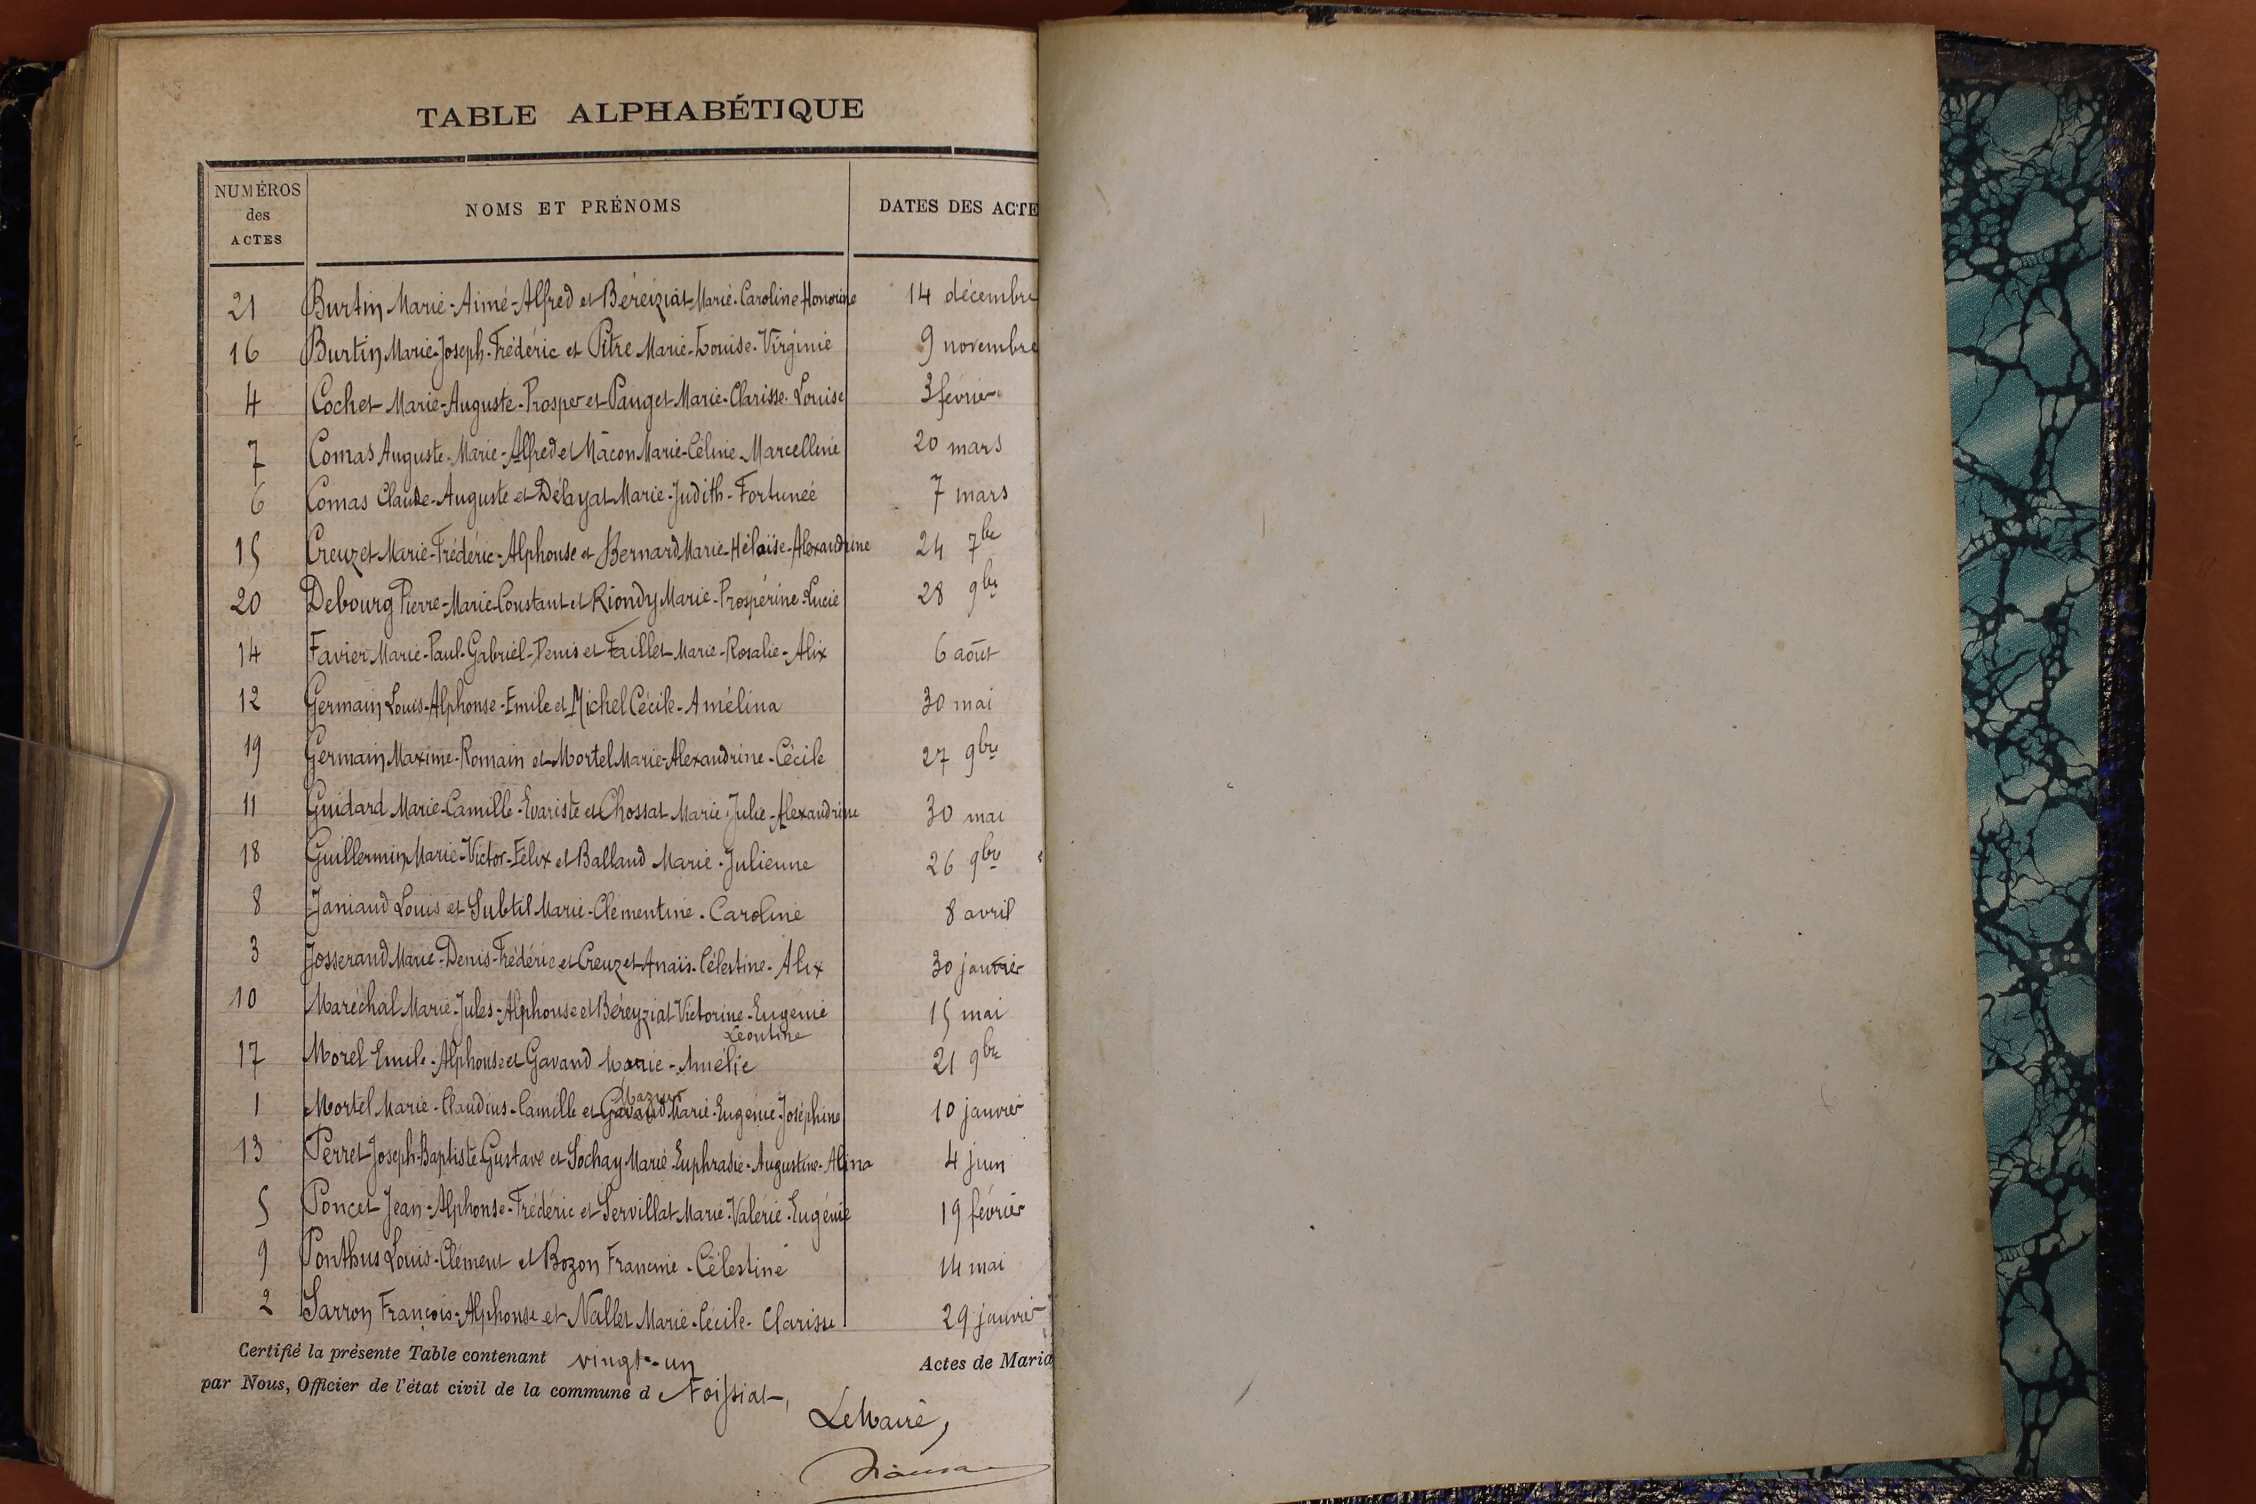 TABLE ALPHABÉTIQUE
NUMÉROS des ACTES NOMS ET PRÉNOMS DATES DES ACTE
21 Burtin Marie-Aimé-Alfred et Béréziat Marie-Caroline Honorine 14 décembre
16 Burtin Marie-Joseph-Frédéric et Pitre Marie-Louise-Virginie 9 novembre
4 Cochet Marie-Auguste-Prosper et Pauget Marie-Clarisse-Louise 3 février
7 Comas Auguste-Marie-Alfred et Mâcon Marie-Céline-Marcelline 20 mars
6 Comas Claude-Auguste et Délayat Marie-Judith-Fortunée 7 mars
15 Creuzet Marie-Frédéric-Alphonse et Bernard Marie-Héloïse-Alexandrine 24 7bre
20 Debourg Pierre-Marie-Constant et Riondy Marie-Prospérine-Lucie 28 9bre
14 Favier Marie-Paul-Gabriel-Denis et Faillet Marie-Rosalie-Alix 6 août
12 Germain Louis-Alphonse-Emile et Michel Cécile-Amélina 30 mai
19 Germain Maxime-Romain et Mortel Marie-Alexandrine-Cécile 27 9bre
11 Guidard Marie-Camille-Evariste et Chossat Marie-Julie-Alexandrine 30 mai
18 Guillermin Marie-Victor-Félix et Balland Marie-Julienne 26 9bre
8 Janiaud Louis et Subtil Marie-Clémentine-Caroline 8 avril
3 Josserand Marie-Denis-Frédéric et Creuzet Anaïs-Célestine-Alix 30 janvier
10 Maréchal Marie-Jules-Alphonse et Béreyziat Victorine-Eugénie 15 mai
Léontine
17 Morel Emile-Alphonse et Gavand Marie-Amélie 21 9bre
Mazuir
1 Mortel Marie-Claudius-Camille et Gavand Marie-Eugénie-Joséphine 10 janvier
13 Perret Joseph-Baptiste-Gustave et Sochay Marie-Euphrasie-Augustine-Alina 4 juin
5 Poncet Jean-Alphonse-Frédéric et Servillat Marie-Valérie-Eugénie 19 février
9 Ponthus Louis-Clément et Bozon Francine-Célestine 14 mai
2 Sarron François-Alphonse et Nallet Marie-Cécile-Clarisse 29 janvier
Certifié la présente Table contenant vingt-un Actes de Maria
par Nous, Officier de l'état civil de la commune d Foissiat,
Le Maire,